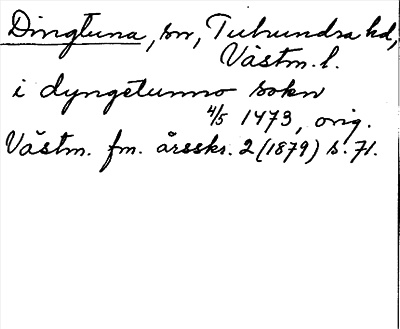 Dingtuna, sn, Tuhundra hd,
Västm. l.
i dyngetunno sokn
4/5 1473, orig.
Västm. fm. årsskr. 2 (1879) s. 71.